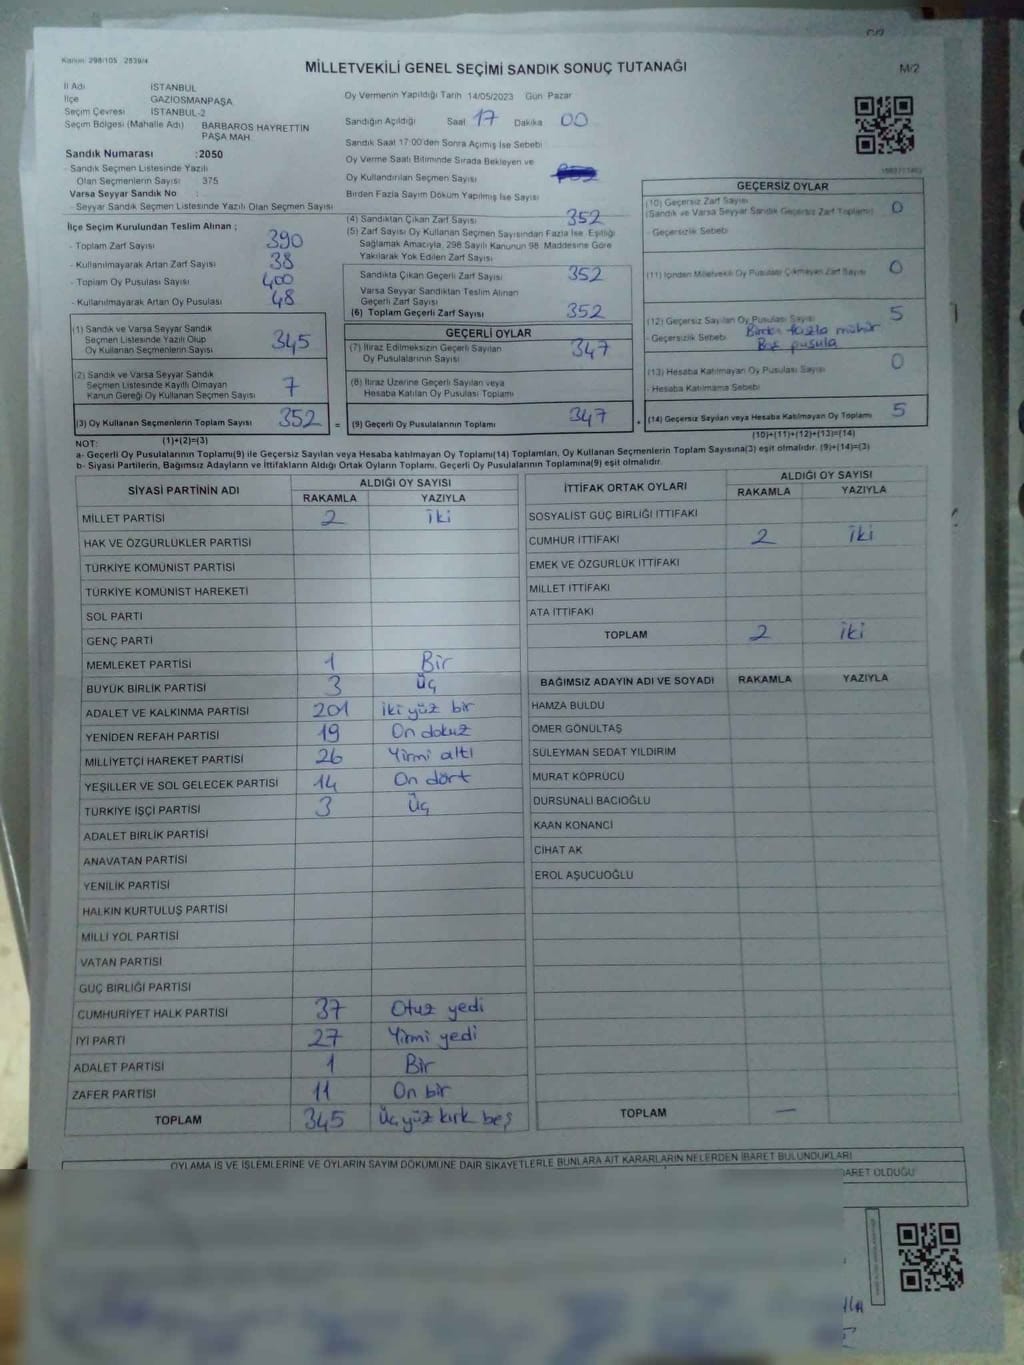 Kanun: 298/105 2839/4
MİLLETVEKİLİ GENEL SEÇİMİ SANDIK SONUÇ TUTANAĞI
M/2
İl Adı İSTANBUL
İlçe GAZİOSMANPAŞA
Seçim Çevresi İSTANBUL-2
Seçim Bölgesi (Mahalle Adı) BARBAROS HAYRETTİN PAŞA MAH.
Sandık Numarası :2050
- Sandık Seçmen Listesinde Yazılı
Olan Seçmenlerin Sayısı : 375
Varsa Seyyar Sandık No :
- Seyyar Sandık Seçmen Listesinde Yazılı Olan Seçmen Sayısı
Oy Vermenin Yapıldığı Tarih 14/05/2023 Gün Pazar
Sandığın Açıldığı Saat 17 Dakika 00
Sandık Saat 17:00'den Sonra Açımış İse Sebebi
Oy Verme Saati Bitiminde Sırada Bekleyen ve
Oy Kullandırılan Seçmen Sayısı
Birden Fazla Sayım Döküm Yapılmış İse Sayısı
İlçe Seçim Kurulundan Teslim Alınan ;
- Toplam Zarf Sayısı 390
- Kullanılmayarak Artan Zarf Sayısı 38
- Toplam Oy Pusulası Sayısı 400
- Kullanılmayarak Artan Oy Pusulası 48
(1) Sandık ve Varsa Seyyar Sandık
Seçmen Listesinde Yazılı Olup
Oy Kullanan Seçmenlerin Sayısı 345
(2) Sandık ve Varsa Seyyar Sandık
Seçmen Listesinde Kayıtlı Olmayan
Kanun Gereği Oy Kullanan Seçmen Sayısı 7
(3) Oy Kullanan Seçmenlerin Toplam Sayısı 352 =
(1)+(2)=(3)
(4) Sandıktan Çıkan Zarf Sayısı 352
(5) Zarf Sayısı Oy Kullanan Seçmen Sayısından Fazla İse, Eşitliği
Sağlamak Amacıyla, 298 Sayılı Kanunun 98. Maddesine Göre
Yakılarak Yok Edilen Zarf Sayısı
Sandıkta Çıkan Geçerli Zarf Sayısı 352
Varsa Seyyar Sandıktan Teslim Alınan
Geçerli Zarf Sayısı
(6) Toplam Geçerli Zarf Sayısı 352
GEÇERLİ OYLAR
(7) İtiraz Edilmeksizin Geçerli Sayılan
Oy Pusulalarının Sayısı 347
(8) İtiraz Üzerine Geçerli Sayılan veya
Hesaba Katılan Oy Pusulası Toplamı
(9) Geçerli Oy Pusulalarının Toplamı 347 +
GEÇERSİZ OYLAR
(10) Geçersiz Zarf Sayısı 0
(Sandık ve Varsa Seyyar Sandık Geçersiz Zarf Toplamı)
- Geçersizlik Sebebi
(11) İçinden Milletvekili Oy Pusulası Çıkmayan Zarf Sayısı 0
(12) Geçersiz Sayılan Oy Pusulası Sayısı 5
- Geçersizlik Sebebi Birden fazla mühür
Boş pusula
(13) Hesaba Katılmayan Oy Pusulası Sayısı 0
- Hesaba Katılmama Sebebi
(14) Geçersiz Sayılan veya Hesaba Katılmayan Oy Toplamı 5
(10)+(11)+(12)+(13)=(14)
NOT:
a- Geçerli Oy Pusulalarının Toplamı(9) ile Geçersiz Sayılan veya Hesaba katılmayan Oy Toplamı(14) Toplamları, Oy Kullanan Seçmenlerin Toplam Sayısına(3) eşit olmalıdır. (9)+(14)=(3)
b- Siyasi Partilerin, Bağımsız Adayların ve İttifakların Aldığı Ortak Oyların Toplamı, Geçerli Oy Pusulalarının Toplamına(9) eşit olmalıdır.
SİYASİ PARTİNİN ADI ALDIĞI OY SAYISI
RAKAMLA YAZIYLA
MİLLET PARTİSİ 2 iki
HAK VE ÖZGÜRLÜKLER PARTİSİ
TÜRKİYE KOMÜNİST PARTİSİ
TÜRKİYE KOMÜNİST HAREKETİ
SOL PARTİ
GENÇ PARTİ
MEMLEKET PARTİSİ 1 Bir
BÜYÜK BİRLİK PARTİSİ 3 Üç
ADALET VE KALKINMA PARTİSİ 201 iki yüz bir
YENİDEN REFAH PARTİSİ 19 On dokuz
MİLLİYETÇİ HAREKET PARTİSİ 26 Yirmi altı
YEŞİLLER VE SOL GELECEK PARTİSİ 14 On dört
TÜRKİYE İŞÇİ PARTİSİ 3 Üç
ADALET BİRLİK PARTİSİ
ANAVATAN PARTİSİ
YENİLİK PARTİSİ
HALKIN KURTULUŞ PARTİSİ
MİLLİ YOL PARTİSİ
VATAN PARTİSİ
GÜÇ BİRLİĞİ PARTİSİ
CUMHURİYET HALK PARTİSİ 37 Otuz yedi
İYİ PARTİ 27 Yirmi yedi
ADALET PARTİSİ 1 Bir
ZAFER PARTİSİ 11 On bir
TOPLAM 345 Üç yüz kırk beş
İTTİFAK ORTAK OYLARI ALDIĞI OY SAYISI
RAKAMLA YAZIYLA
SOSYALİST GÜÇ BİRLİĞİ İTTİFAKI
CUMHUR İTTİFAKI 2 iki
EMEK VE ÖZGÜRLÜK İTTİFAKI
MİLLET İTTİFAKI
ATA İTTİFAKI
TOPLAM 2 iki
BAĞIMSIZ ADAYIN ADI VE SOYADI RAKAMLA YAZIYLA
HAMZA BULDU
ÖMER GÖNÜLTAŞ
SÜLEYMAN SEDAT YILDIRIM
MURAT KÖPRÜCÜ
DURSUNALİ BACIOĞLU
KAAN KONANCİ
CİHAT AK
EROL AŞUCUOĞLU
TOPLAM —
OYLAMA İŞ VE İŞLEMLERİNE VE OYLARIN SAYIM DÖKÜMÜNE DAİR ŞİKAYETLERLE BUNLARA AİT KARARLARIN NELERDEN İBARET BULUNDUKLARI
İBARET OLDUĞU